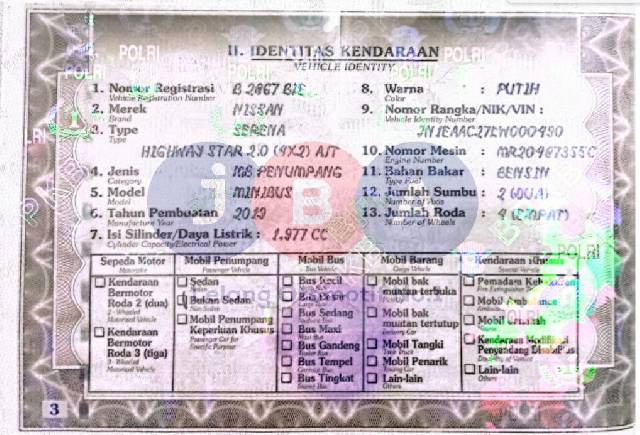 II. IDENTITAS KENDARAAN
VEHICLE IDENTITY
1. Nomor Registrasi B 2867 BIE
Vehicle Registration Number
2. Merek NISSAN
Brand
3. Type SERENA
Type
HIGHWAY STAR 2.0 (4X2) A/T
4. Jenis MB PENUMPANG
Category
5. Model MINIBUS
Model
6. Tahun Pembuatan 2019
Manufacture Year
7. Isi Silinder/Daya Listrik : 1.977 CC
Cylinder Capacity/Electrical Power
8. Warna : PUTIH
Color
9. Nomor Rangka/NIK/VIN :
Vehicle Identity Number
10. Nomor Mesin :
Engine Number
11. Bahan Bakar : BENSIN
Type Fuel
12. Jumlah Sumbu : 2 (DUA)
Number of Axis
13. Jumlah Roda : 4 (EMPAT)
Number of Wheels
Sepeda Motor
Motorbike
Kendaraan
Bermotor
Roda 2 (dua)
2 - Wheeled
Motorized Vehicle
Kendaraan
Bermotor
Roda 3 (tiga)
3 - Wheeled
Motorized Vehicle
Mobil Penumpang
Passenger Vehicle
Sedan
Sedan
Bukan Sedan
Non Sedan
Mobil Penumpang
Keperluan Khusus
Passenger Car for
Specific Purpose
Mobil Bus
Bus Vehicle
Bus Kecil
Bus Besar
Bus Sedang
Bus Maxi
Maxi Bus
Bus Gandeng
Bus Tempel
Bus Tingkat
Mobil Barang
Cargo Vehicle
Mobil bak
muatan terbuka
Pickup
Mobil bak
muatan tertutup
Delivery Car
Mobil Tangki
Tank Truck
Mobil Penarik
Towing Car
Lain-lain
Others
Kendaraan Khusus
Special Vehicle
Pemadam Kebakaran
Mobil Ambulance
Mobil Jenazah
Kendaraan Modifikasi
Penyandang Disabilitas
Lain-lain
Others
3
POLRI
POLRI
POLRI
POLRI